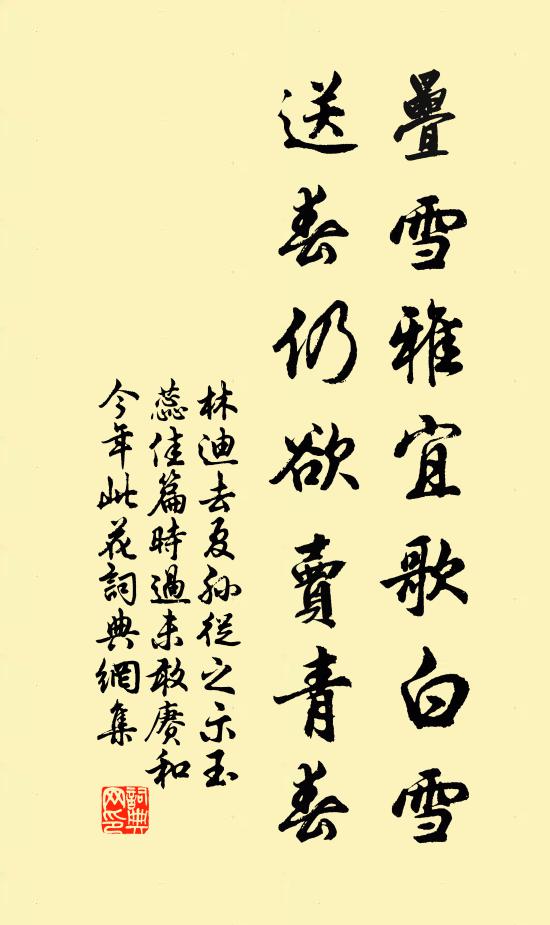 疊雪雅宜歌白雪
送春仍欲賣青春
林迪去夏孙從之示玉
蕊佳篇時過未敢赓和
今年此花詞典網集
詞典
网印